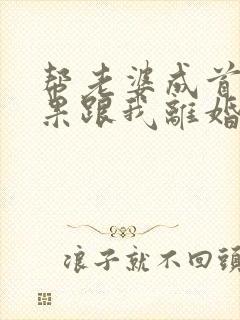 帮老婆成首
果跟我離婚
浪子就不回頭